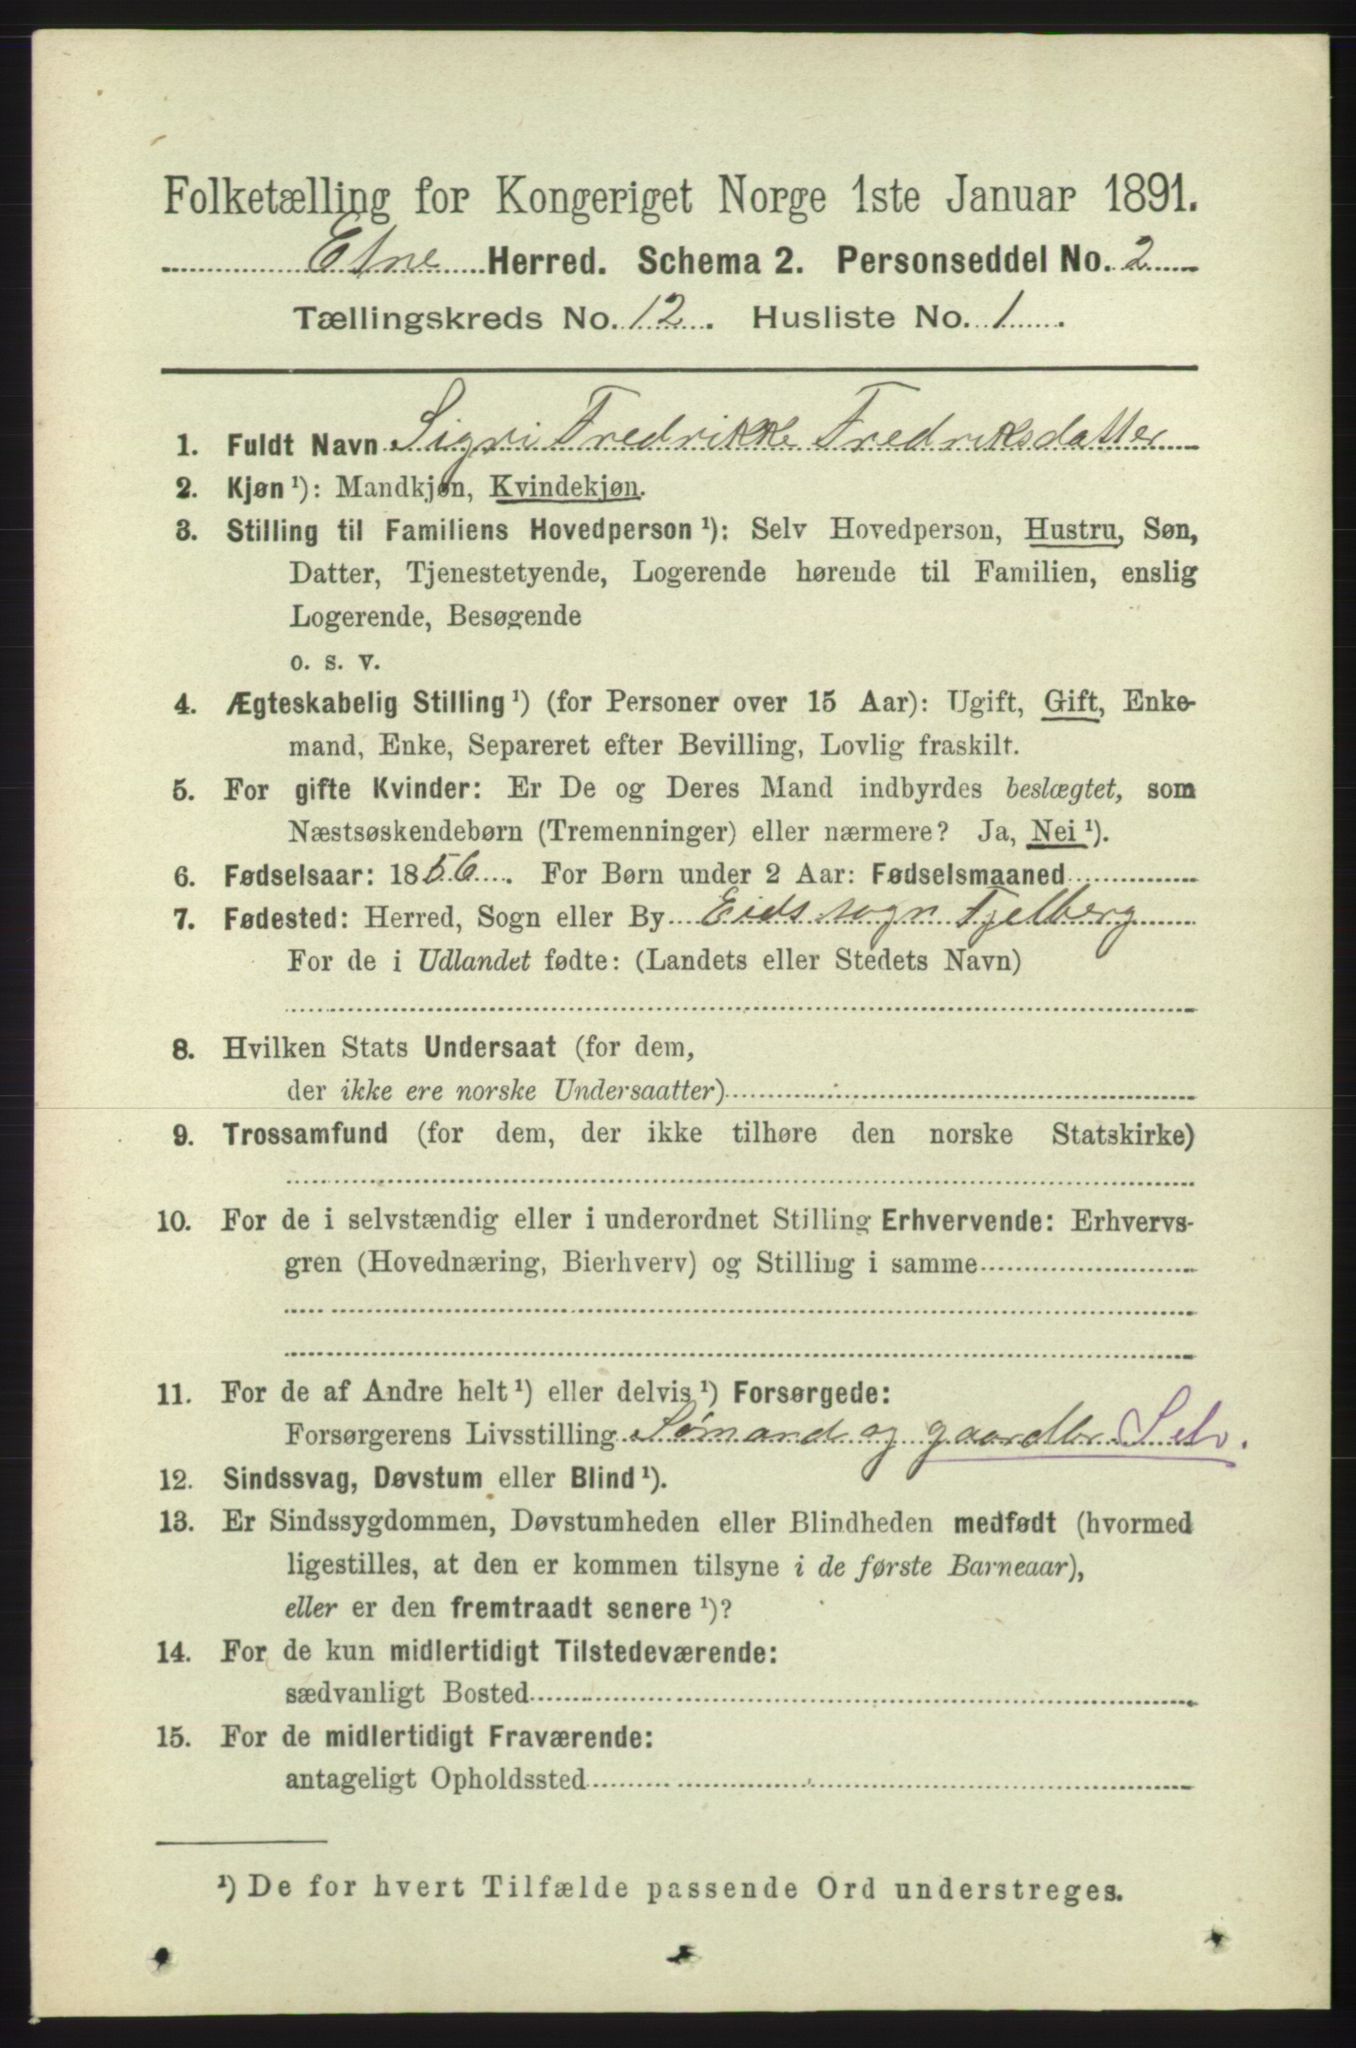 Folketælling for Kongeriget Norge 1ste Januar 1891.
Etne Herred. Schema 2. Personseddel No. 2
Tællingskreds No. 12. Husliste No. 1.
1. Fuldt Navn Sigri Fredrikke Fredriksdatter
2. Kjøn ¹): Mandkjøn, Kvindekjøn.
3. Stilling til Familiens Hovedperson ¹): Selv Hovedperson, Hustru, Søn,
Datter, Tjenestetyende, Logerende hørende til Familien, enslig
Logerende, Besøgende
o. s. v.
4. Ægteskabelig Stilling ¹) (for Personer over 15 Aar): Ugift, Gift, Enke-
mand, Enke, Separeret efter Bevilling, Lovlig fraskilt.
5. For gifte Kvinder: Er De og Deres Mand indbyrdes beslægtet, som
Næstsøskendebørn (Tremenninger) eller nærmere? Ja, Nei ¹).
6. Fødselsaar: 1856. For Børn under 2 Aar: Fødselsmaaned
7. Fødested: Herred, Sogn eller By Eids sogn Fjelberg
For de i Udlandet fødte: (Landets eller Stedets Navn)
8. Hvilken Stats Undersaat (for dem,
der ikke ere norske Undersaatter)
9. Trossamfund (for dem, der ikke tilhøre den norske Statskirke)
10. For de i selvstændig eller i underordnet Stilling Erhvervende: Erhvervs-
gren (Hovednæring, Bierhverv) og Stilling i samme
11. For de af Andre helt ¹) eller delvis ¹) Forsørgede:
Forsørgerens Livsstilling Sømand og gaardbr. Selv.
12. Sindssvag, Døvstum eller Blind ¹).
13. Er Sindssygdommen, Døvstumheden eller Blindheden medfødt (hvormed
ligestilles, at den er kommen tilsyne i de første Barneaar),
eller er den fremtraadt senere ¹)?
14. For de kun midlertidigt Tilstedeværende:
sædvanligt Bosted
15. For de midlertidigt Fraværende:
antageligt Opholdssted
¹) De for hvert Tilfælde passende Ord understreges.